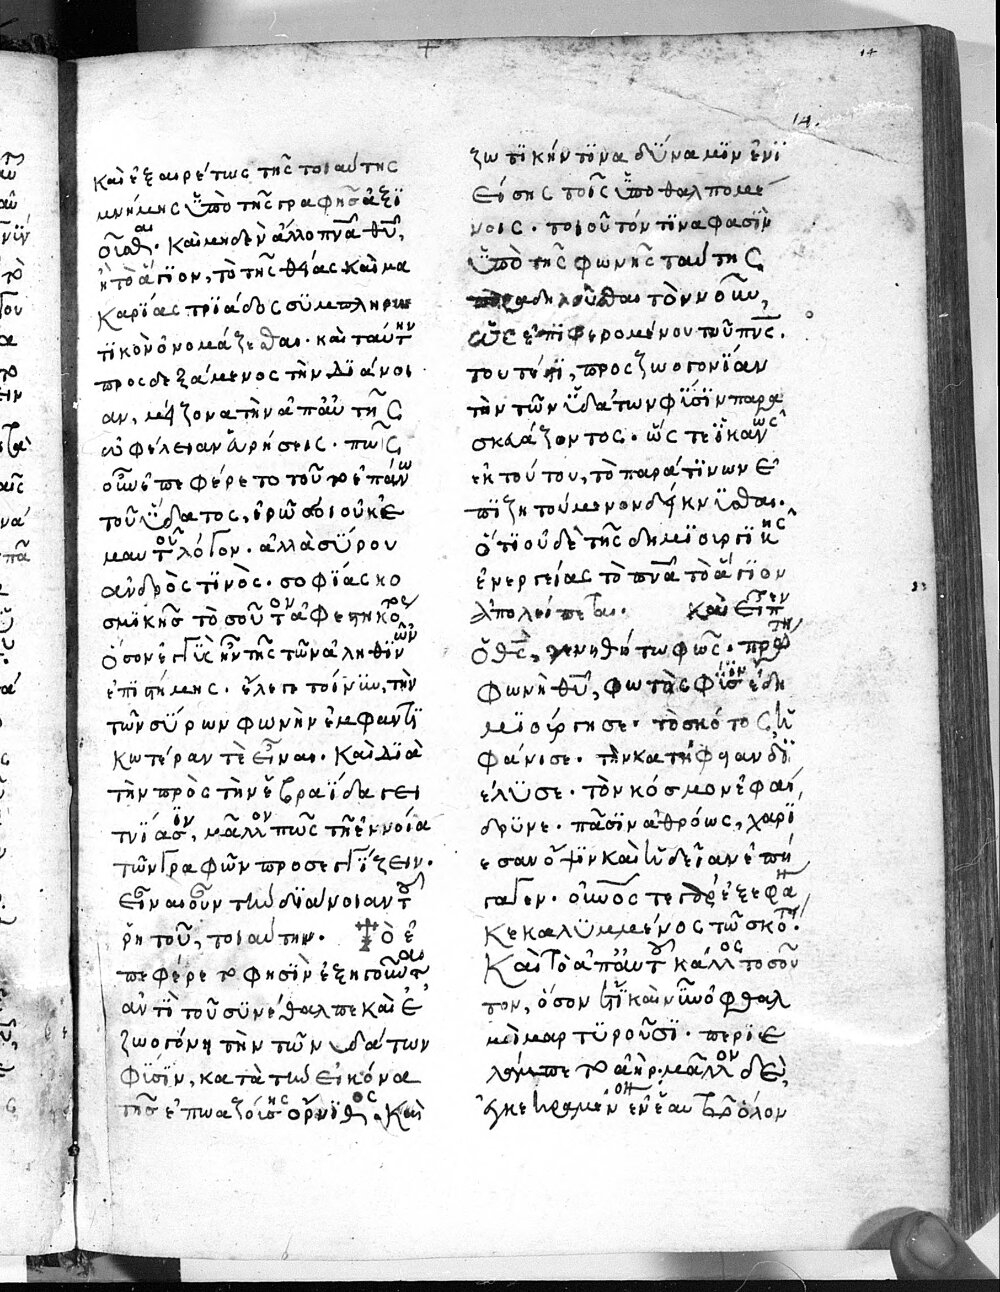 14
14.
καὶ ἐξαιρέτως τῆς τοιαύτης
μνήμης ὑπὸ τῆς γραφῆς ἀξϊ
οῦσθαι. καὶ μηδὲν ἄλλο πνᾶ θῦ,
ἢ τὸ ἅγϊον, τὸ τῆς θείας καὶ μα
καρίας τρϊάδος συμπληρω
τϊκὸν ὀνομάζεσθαι. καὶ ταύτην
προσδεξάμενος τὴν δϊάνοι
αν, μείζονα τὴν ἀπ αὐτῆς
ὠφέλειαν εὑρήσεις. πῶς
οὖν ἐπεφέρετο τοῦτο ἐπάνω
τοῦ ὕδατος, ἐρῶ σοι οὐκ ἐ
μαυτοῦ λόγον. ἀλλὰ σύρου
ανδρὸς τϊνὸς. σοφίας κο
σμϊκῆς τὸσοῦτον ἀφεστηκότος
ὅσον ἐγγὺς ἦν τῆς τῶν ἀληθϊνῶν
ἐπϊστήμης. ἔλεγε τοίνυν, τὴν
τῶν σύρων φωνὴν ἐμφαντϊ
κωτέραν τὲ εἶναι. καὶ δϊὰ
τὴν πρὸς τὴν ἑβραΐδα γει
τνϊασϊν, μᾶλλον πῶς τῆ ἐννοία
τῶν γραφῶν προσεγγίζειν.
εἶναι οὖν τὴν δϊάνοιαν τοῦ
ῥητοῦ, τοιαύτην. τὸ ἐ
πεφέρετο φησὶν ἐξηγοῦνται
αντὶ τοῦ συνέθαλπε καὶ ἐ
ζωογόνει τὴν τῶν ὑδάτων
φύσϊν, κατὰ τὴν εἰκόνα
τῆς ἐπωαζούσης ὄρνϊθος. καὶ
ζωτϊκήν τϊνα δύναμϊν ἐνϊ
είσης τοῖς ὑποθαλπομέ
νοις. τοιοῦτόν τϊνα φασὶν
ὑπὸ τῆς φωνῆς ταύτης
παραδηλοῦσθαι τὸν νοῦν,
ὡς ἐπϊφερομένου τοῦ πνς.
τουτέστι, πρὸς ζωογονϊαν
τὴν τῶν ὑδάτων φύσϊν παρα
σκευάζοντος. ὥς τε ϊκανῶς
ἐκ τούτου, τὸ παρά τϊνων ἐ
πϊζητούμενον δείκνυσθαι.
ὅτϊ οὐδὲ τῆς δημϊουργϊκῆς
ἐνεργείας τὸ πνᾶ τὸ ἅγϊον
ἀπολείπεται. καὶ εἶπεν
ὁ θς, γενηθήτω φῶς. πρώτη
φωνὴ θῦ, φωτὸς φύσϊν ἐδη
μϊούργησε. τὸ σκότος ἠ
φάνισε. τὴν κατήφειαν δϊ
έλυσε. τὸν κόσμον ἐφαί
δρυνε. πᾶσϊν ἀθρόως, χαρϊ
εσαν ὄψϊν καὶ ἡδεῖαν ἐπή
γαγεν. οὐνος τε γὰρ ἐξεφάνη
κεκαλυμμένος τῶ σκότει.
καὶ τὸ ἀπ αὐτοῦ κάλλος τοσοῦ
τον, ὅσον ἔτι καὶ νῦν ὀφθαλ
μοὶ μαρτυροῦσϊ. περϊε
λάμπετο ἀὴρ. μᾶλλον δὲ,
ἐγκεκραμένον ἐν ἑαυτῶ ὅλον